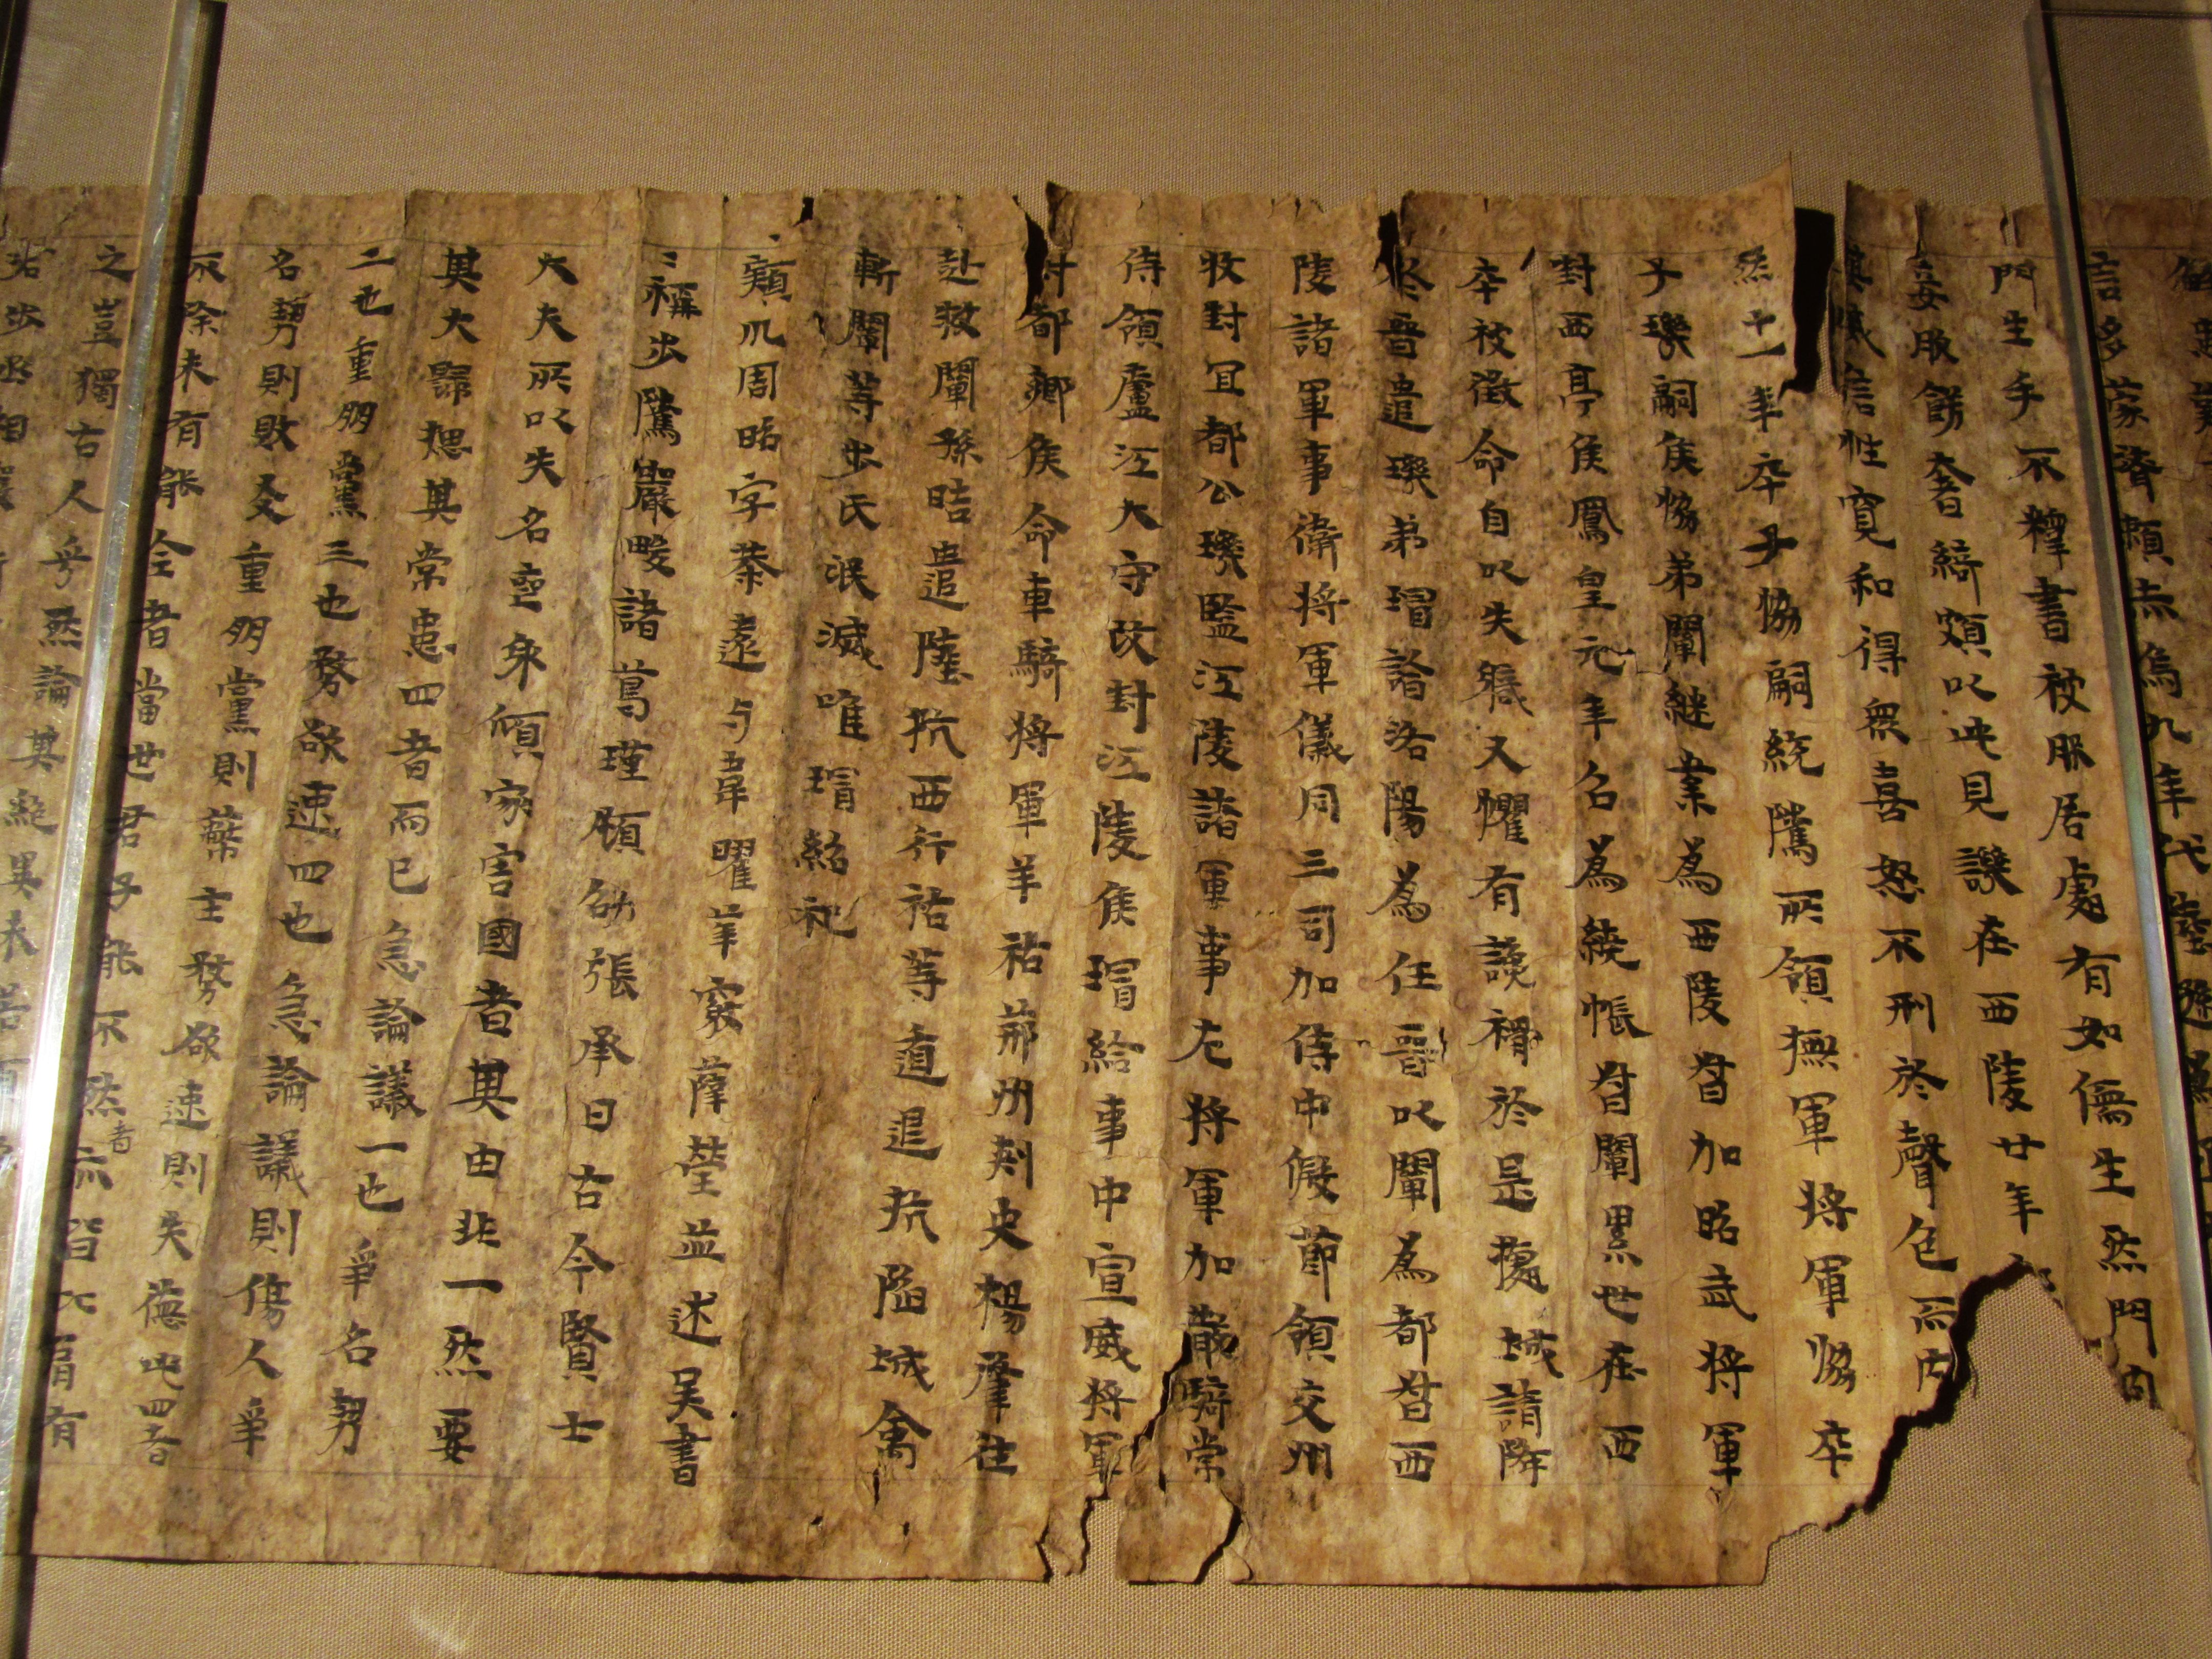 言多蒙濟賴赤烏九年代陸遜為
門生手不釋書被服居處有如儒生然門內
妻妾服飾奢綺頗以此見譏在西陵廿年
其威信性寬和得衆喜怒不形於聲色而內
然十一年卒子協嗣統騭所領撫軍將軍協卒
子璣嗣侯協弟闡継業為西陵督加昭武將軍
封西亭侯鳳皇元年召為繞帳督闡累世在西
卒被徵命自以失職又懼有讒禍於是據城請降
於晉遣璣弟璿詣洛陽為任晉以闡為都督西
陵諸軍事衛將軍儀同三司加侍中假節領交州
牧封宜都公璣監江陵諸軍事左將軍加散騎常
侍領廬江太守改封江陵侯璿給事中宣威將軍
封都鄉侯命車騎將軍羊祜荊州刺史楊肇往
赴救闡孫晧遣陸抗西行祜等遁退抗陷城禽
斬闡等步氏泯滅唯璿紹祀
潁川周昭字恭遠与韋曜華覈薛瑩並述吳書
稱步騭嚴畯諸葛瑾顧邵張承曰古今賢士
大夫所以失名喪身傾家害國者其由非一然要
其大歸揔其常患四者而已急論議一也爭名勢
二也重朋黨三也務欲速四也急論議則傷人爭
名勢則敗友重朋黨則蔽主務欲速則失德此四者
不除未有能全者當世君子能不然者亦皆比肩有
之豈獨古人乎然論其絕異未若